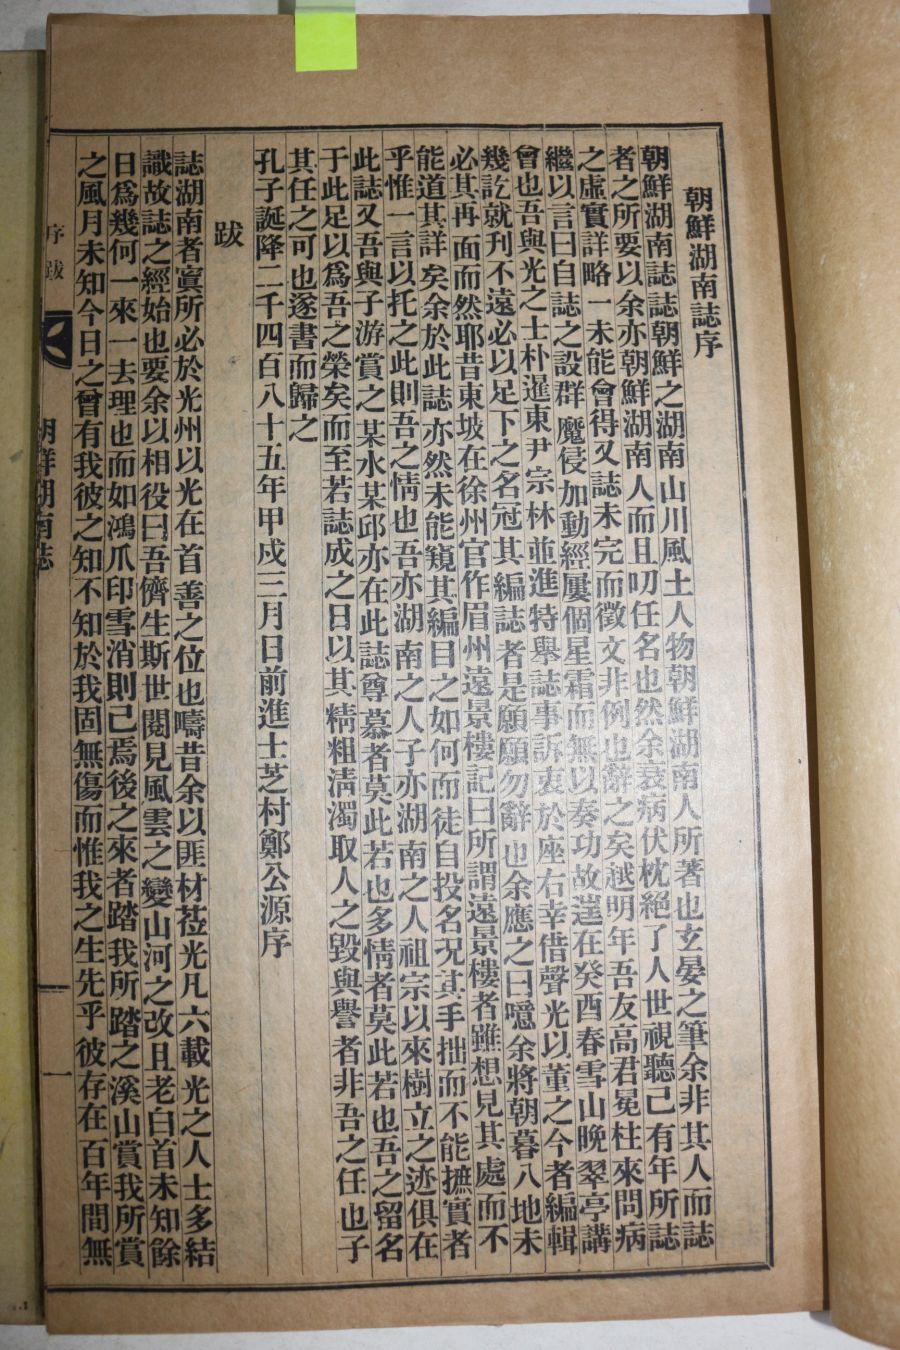 朝鮮湖南誌序
朝鮮湖南誌誌朝鮮之湖南山川風土人物朝鮮湖南人所著也玄晏之筆余非其人而誌
者之所要以余亦朝鮮湖南人而且叨任名也然余衰病伏枕絕了人世視聽已有年所誌
之虛實詳略一未能會得又誌未完而徵文非例也辭之矣越明年吾友高君冕柱來問病
繼以言曰自誌之設群魔侵加動經屢個星霜而無以奏功故遑在癸酉春雪山晚翠亭講
會也吾與光之士朴暹東尹宗林並進特舉誌事訴衷於座右幸借聲光以董之今者編輯
幾訖就刊不遠必以足下之名冠其編誌者是願願勿辭也余應之曰噫余將朝暮入地未
必其再面而然耶昔東坡在徐州官作眉州遠景樓記曰所謂遠景樓者雖想見其處而不
能道其詳矣余於此誌亦然未能窺其編目之如何而徒自投名況其手拙而不能摭實者
乎惟一言以托之此則吾之情也吾亦湖南之人子亦湖南之人祖宗以來樹立之迹俱在
此誌又吾與子游賞之某水某邱亦在此誌尊慕者莫此若也多情者莫此若也吾之留名
于此足以爲吾之榮矣而至若誌成之日以其精粗淸濁取人之毀與譽者非吾之任也子
其任之可也遂書而歸之
孔子誕降二千四百八十五年甲戌三月日前進士芝村鄭公源序
跋
誌湖南者實所必於光州以光在首善之位也疇昔余以匪材莅光凡六載光之人士多結
識故誌之經始也要余以相役曰吾儕生斯世閱見風雲之變山河之改且老白首未知餘
日爲幾何一來一去理也而如鴻爪印雪消則已焉後之來者踏我所踏之溪山賞我所賞
之風月未知今日之曾有我彼之知不知於我固無傷而惟我之生先乎彼存在百年間無
序跋
朝鮮湖南誌
一